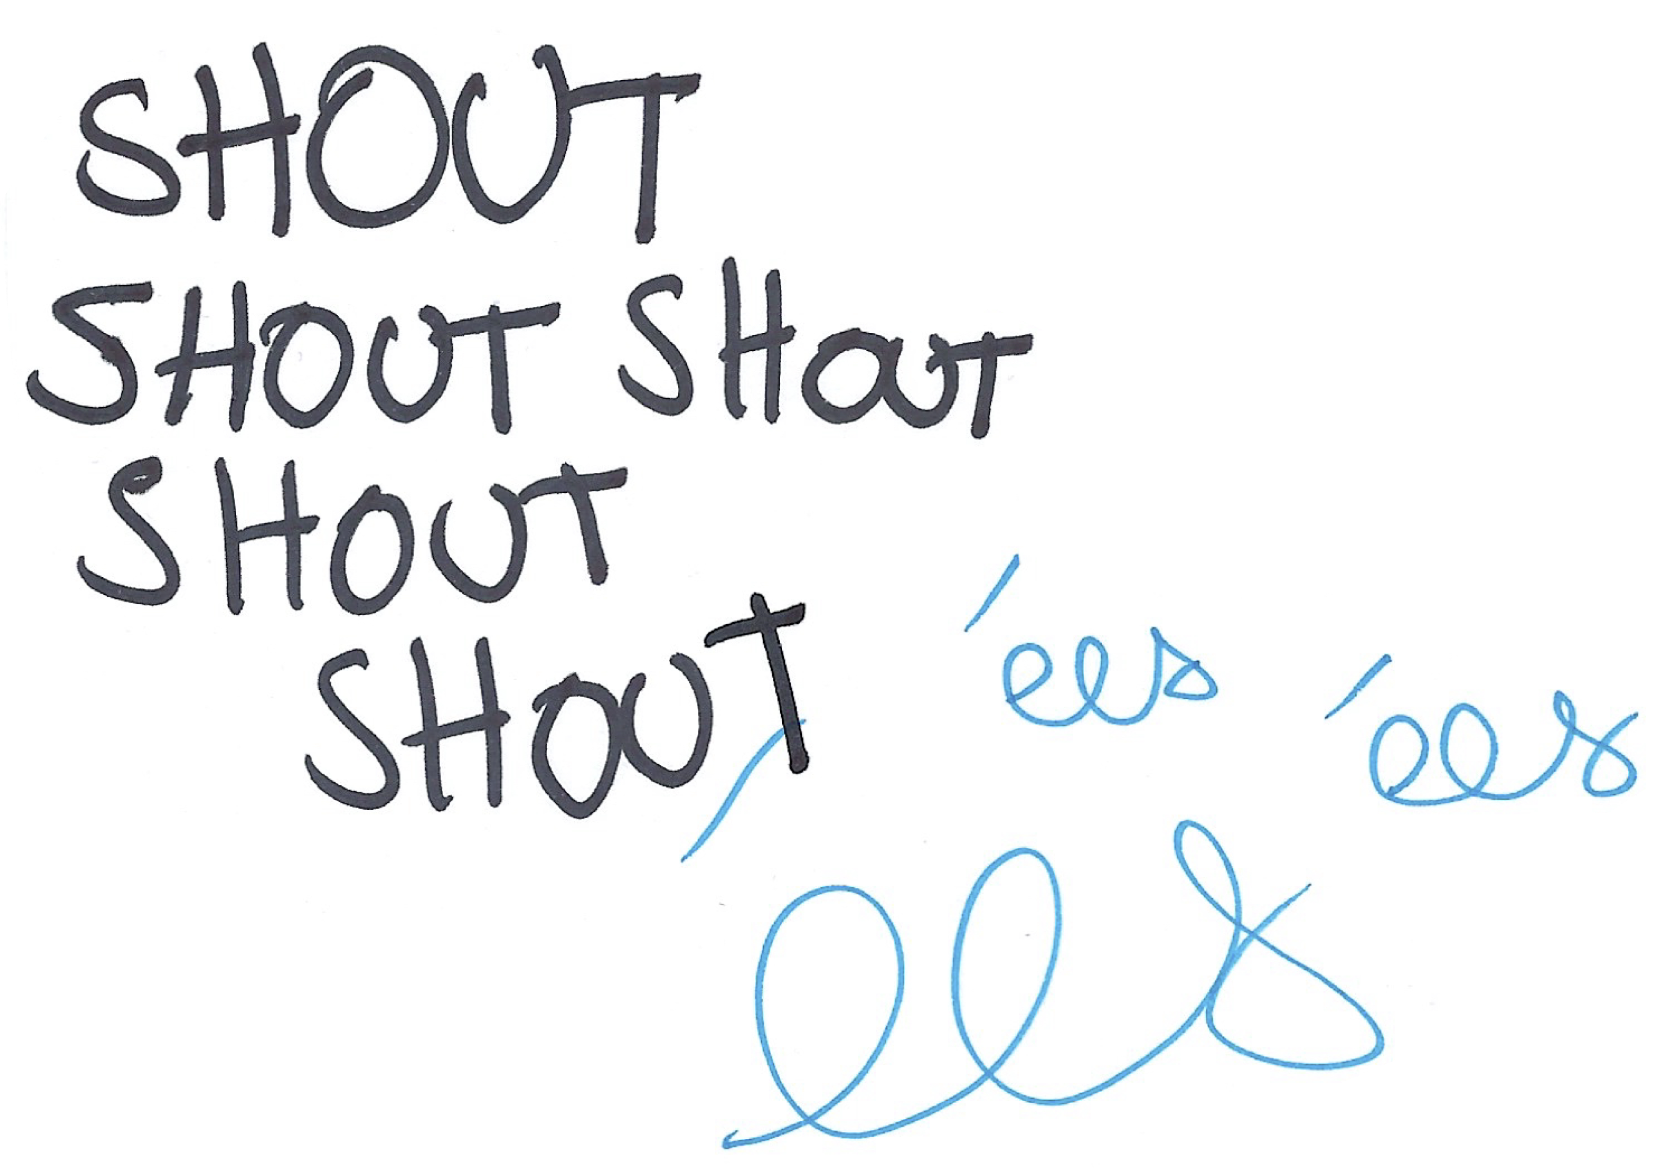 SHOUT
SHOUT SHOUT
SHOUT
SHOUT
ées ées
ées